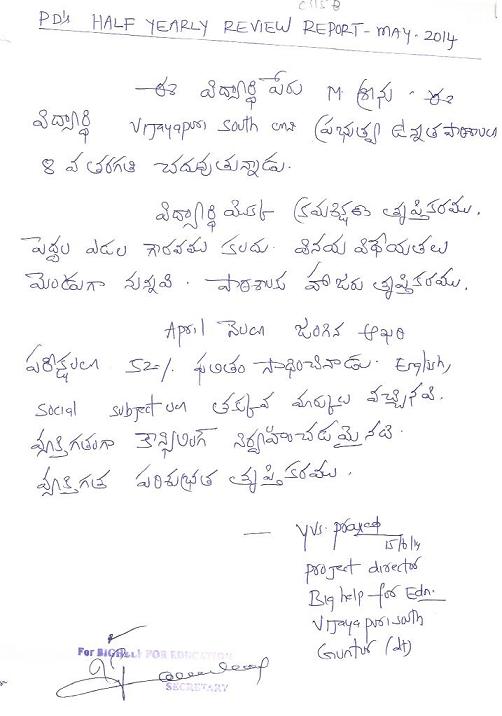 C115B
PD's HALF YEARLY REVIEW REPORT - MAY - 2014
ఈ విద్యార్థి పేరు M శ్రీను. ఈ
విద్యార్థి Vijayapuri South లోని ప్రభుత్వ ఉన్నత పాఠశాలలో
8 వ తరగతి చదువుతున్నాడు.
విద్యార్థి యొక్క క్రమశిక్షణ తృప్తికరము.
పెద్దల ఎడల గౌరవము కలదు. వినయ విధేయతలు
మెండుగా నున్నవి. పాఠశాలకు హాజరు తృప్తికరము.
April నెలలో జరిగిన ఆఖరి
పరీక్షలలో 52% ఫలితం సాధించినాడు. English,
Social subject లలో తక్కువ మార్కులు వచ్చినవి.
వ్యక్తిగతంగా కౌన్సిలింగ్ నిర్వహించడమైనది.
వ్యక్తిగత పరిశుభ్రత తృప్తికరము.
— YVS. Prasad
15/6/14
Project director
Big help for Edn.
Vijayapuri South
Guntur (dt)
For BIGHELP FOR EDUCATION
SECRETARY